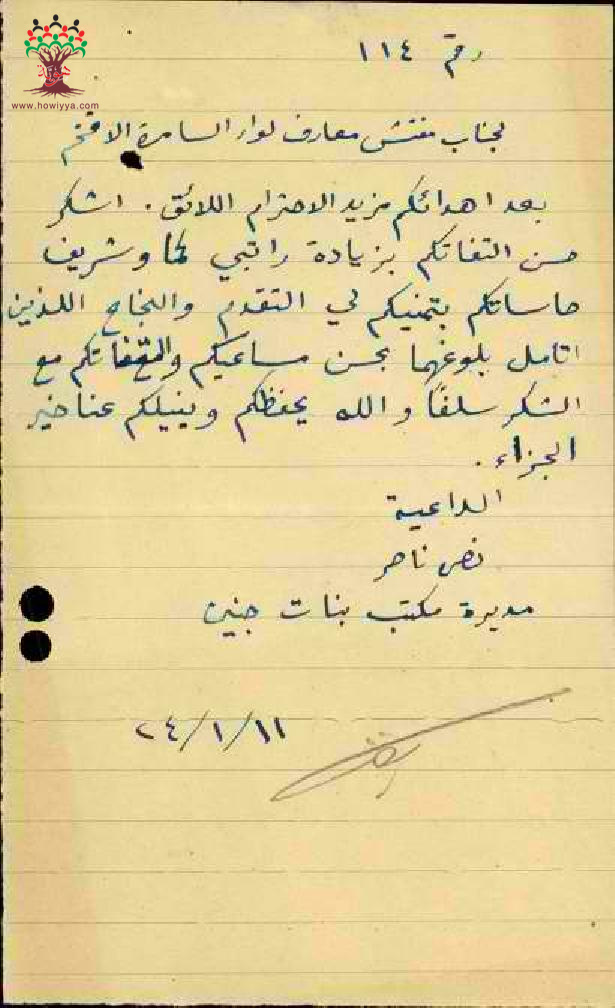 www.howiyya.com
رقم ١١٤
لجناب مفتش معارف لواء السامرة الافخم
بعد اهدائكم مزيد الاحترام اللائق. اشكر
حسن التفاتكم بزيادة راتبي كما وشريف
حاساتكم بتمنيكم لي التقدم والنجاح اللذين
اتامل بلوغهما بحسن مساعيكم مع
الشكر سلفًا والله يحفظكم وينيلكم عنا خير
الجزاء.
الداعية
ناصر
مديرة مكتب بنات جنين
٢٤/١/١١